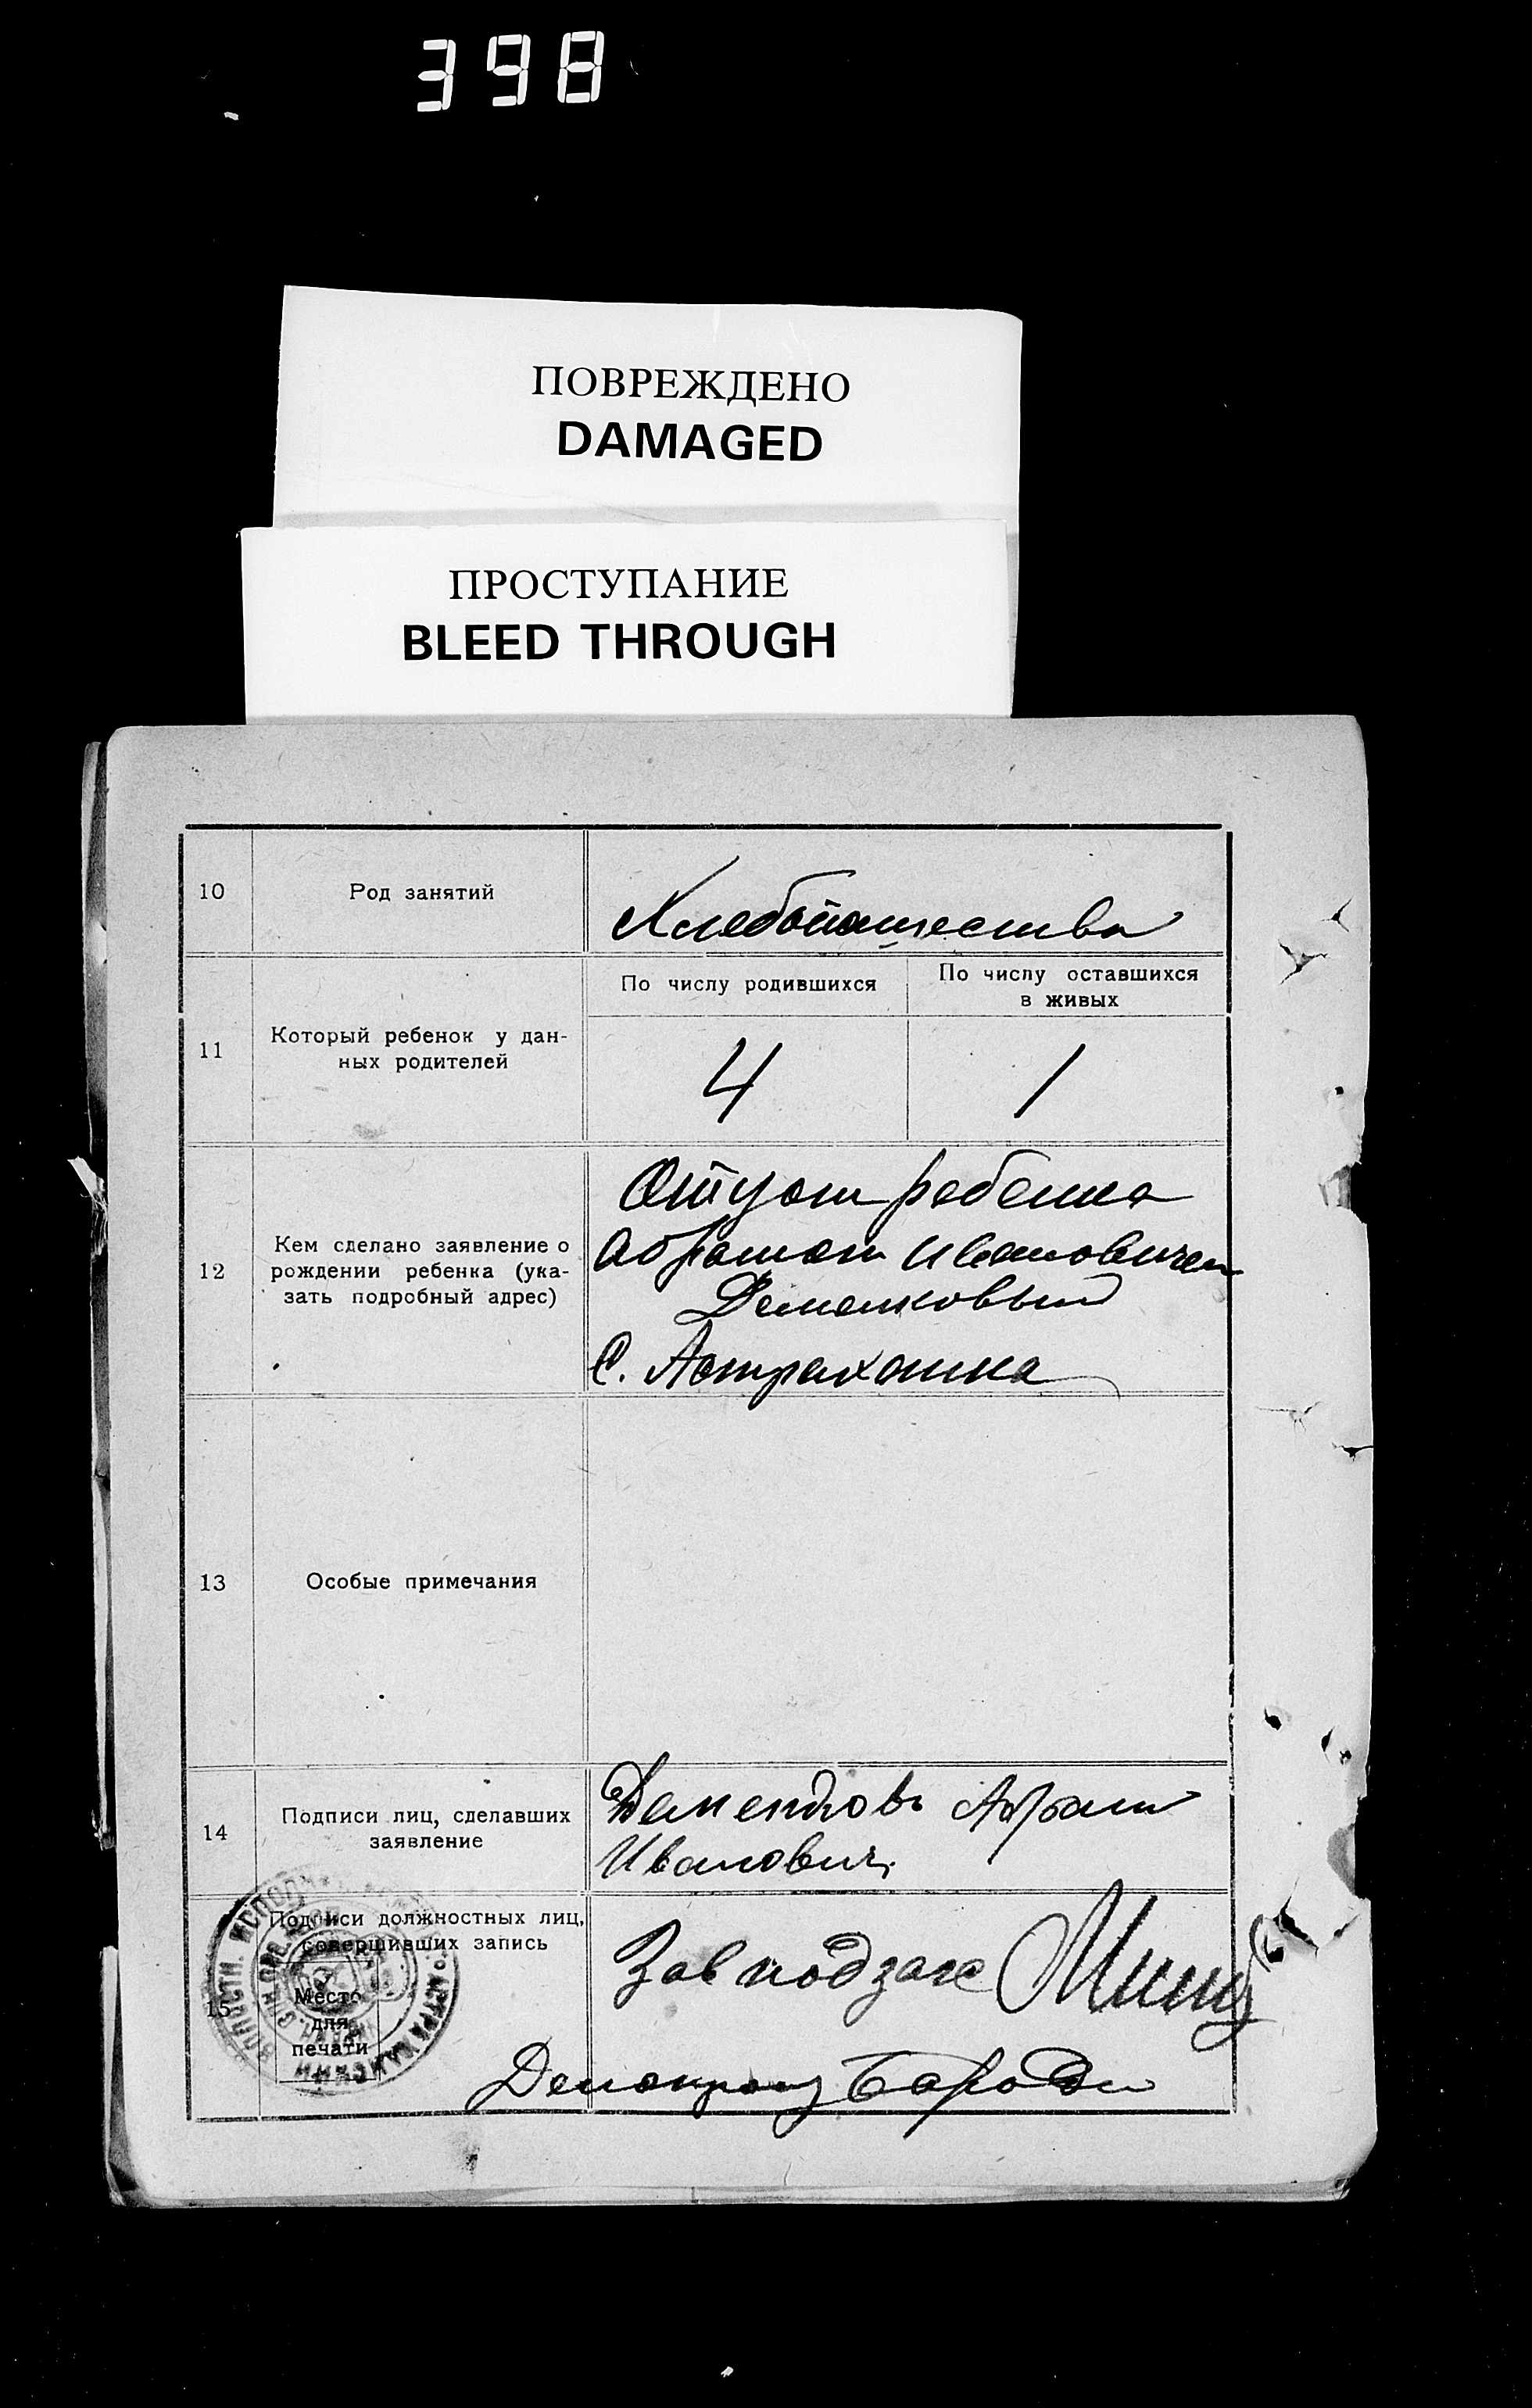 398
ПОВРЕЖДЕНО
DAMAGED
ПРОСТУПАНИЕ
BLEED THROUGH
10
Род занятий
Хлебопашества
11
Который ребенок у дан-
ных родителей
По числу родившихся
По числу оставшихся
в живых
4
1
12
Кем сделано заявление о
рождении ребенка (ука-
зать подробный адрес)
Отцом ребенка
Абрамом Ивановичем
Деменковым
С. Астраханка
13
Особые примечания
14
Подписи лиц, сделавших
заявление
Деменков Абрам
Иванович
15
Подписи должностных лиц,
совершивших запись
Место
для
печати
Зав подзагс